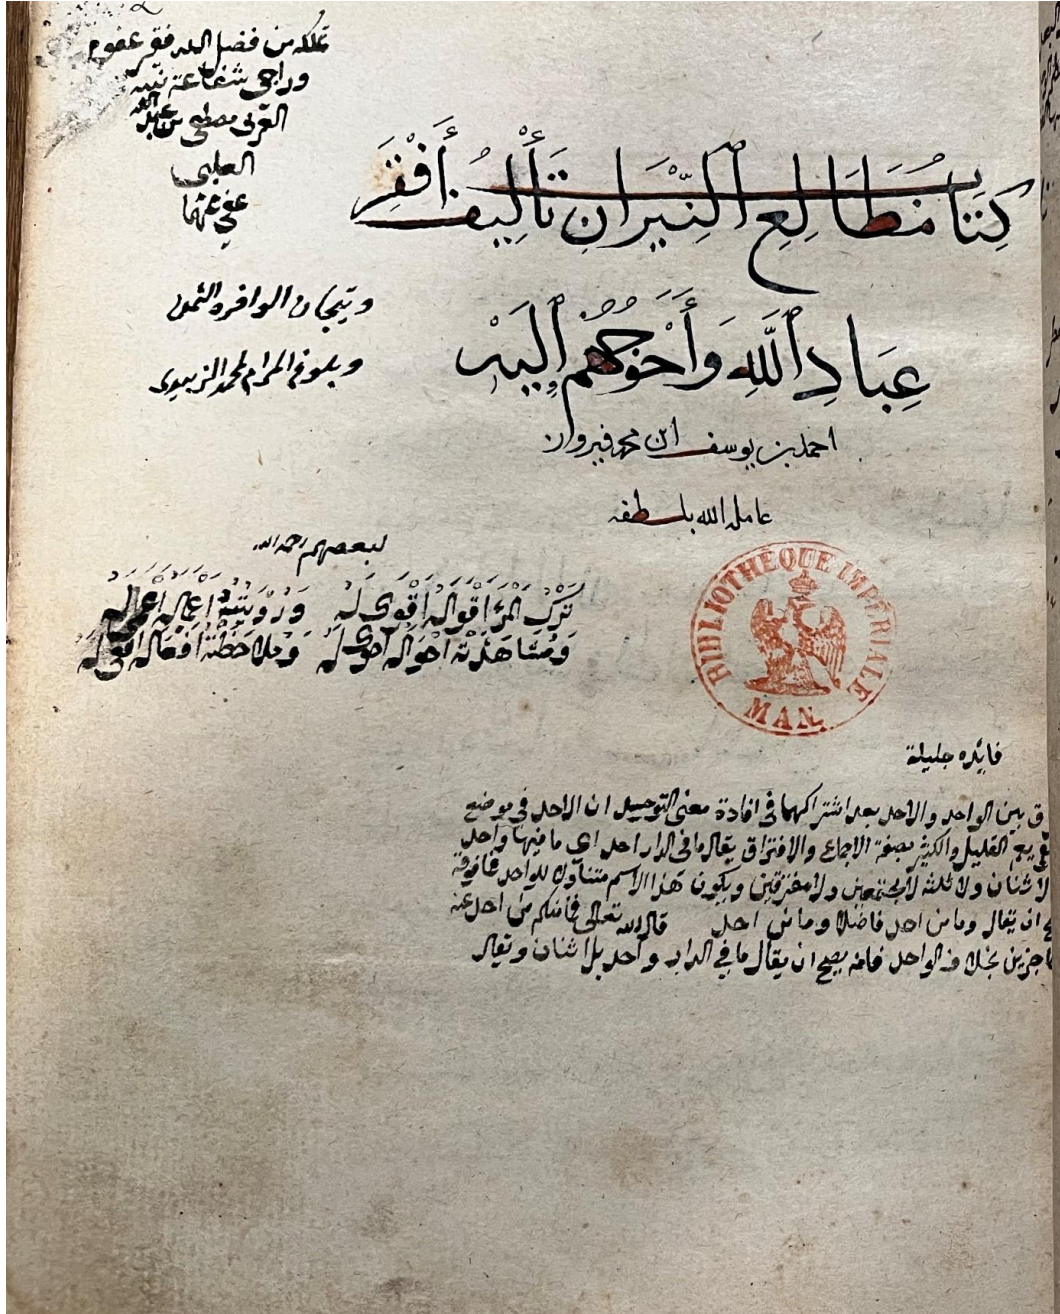 تملكه من فضل الله فقير عفوه
وراجي شفاعة نبيه
العربي مصطفى بن عبد الله
الحلبي
عفي عنهما
كِتَابُ مَطَالِعِ ٱلنَّيِّرَانِ تَأْلِيفُ أَفْقَرِ
عِبَادِ ٱللَّهِ وَأَحْوَجُهُمْ إِلَيْهِ
احمد بن يوسف ابن محمد فيروز
عامله الله بلطفه
وتيجان الوافره الثمن
وبلوغ المرام لمحمد الزبيدي
لبعضهم رحمه الله
تَرْكُ الْمَرْءِ أَقْوَالَهُ أَقْوَى لَهُ وَرُؤْيَتُهُ أَعْمَالَهُ أَعْمَى لَهُ
وَمُشَاهَدَتُهُ أَحْوَالَهُ أَحْوَى لَهُ وَمُلَاحَظَتُهُ أَفْعَالَهُ أَفْعَى لَهُ
BIBLIOTHÈQUE IMPÉRIALE
MAN.
فايده جليلة
ق بين الواحد والاحد بعد اشتراكهما في افادة معنى التوحيد ان الاحد في موضع
القليل والكثير بصفة الاجماع والافتراق يقال ما في الدار احد اي ما فيها واحد
لا اثنان ولا ثلثة لا مجتمعين ولا مفترقين ويكون هذا الاسم متناولا للواحد فما فوقه
ان يقال وما من احد فاضلا وما من احد قال الله تعالى فما منكم من احد عنه
حاجزين بخلاف الواحد فانه يصح ان يقال ما في الدار واحد بل اثنان ويقال